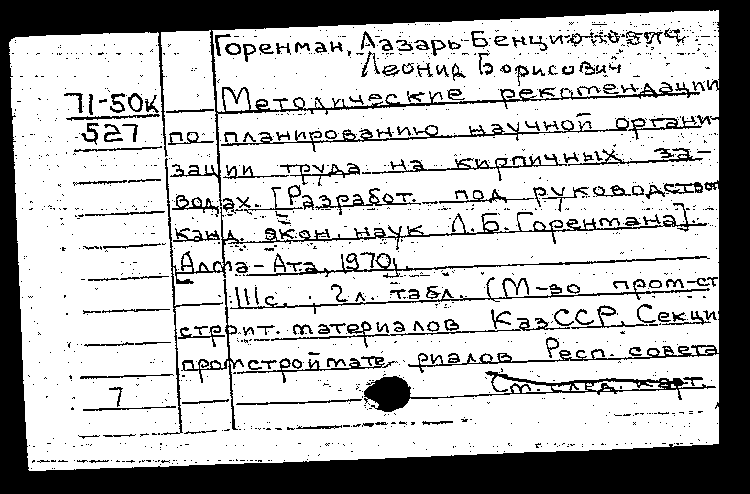 Горенман, Лазарь Бенционович
Леонид Борисович
71-50к
527
Методические рекомендации
по планированию научной органи-
зации труда на кирпичных за-
водах. [Разработ. под руководством
канд. экон. наук Л.Б. Горенмана].
Алма-Ата, 1970.
111с.; 2л. табл. (М-во пром-ст
строит. материалов КазССР. Секци
промстроймате риалов Респ. совета
См. след. карт.
7